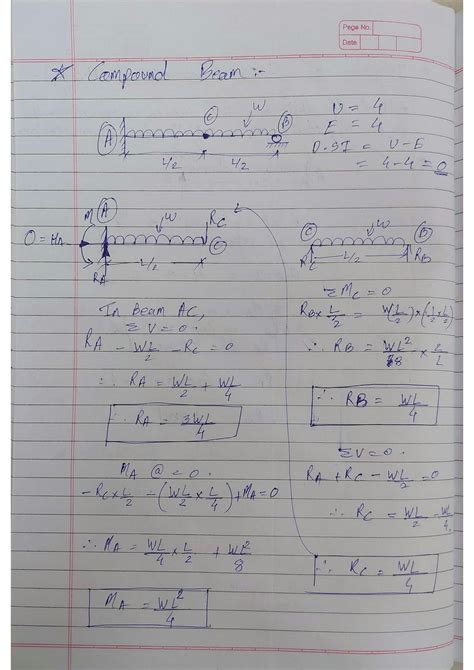 Page No.
Date
* Compound Beam :-
U = 4
E = 4
D.SI = U-E
= 4-4 = 0
A C W B
L/2 L/2
M A W RC
0 = HA C
RA L/2
C W B
RC L/2 RB
In Beam AC,
ΣV = 0.
RA - WL/2 - RC = 0
∴ RA = WL/2 + WL/4
∴ RA = 3WL/4
MA @ = 0.
-RC × L/2 - (WL/2 × L/4) + MA = 0
∴ MA = WL/4 × L/2 + WL²/8
MA = WL²/4
ΣMC = 0
RB × L/2 = W(L/2) × (1/2 × L/2)
∴ RB = WL²/8 × 2/L
∴ RB = WL/4
ΣV = 0.
RA + RC - WL/2 = 0
∴ RC = WL/2 - WL/4
∴ RC = WL/4